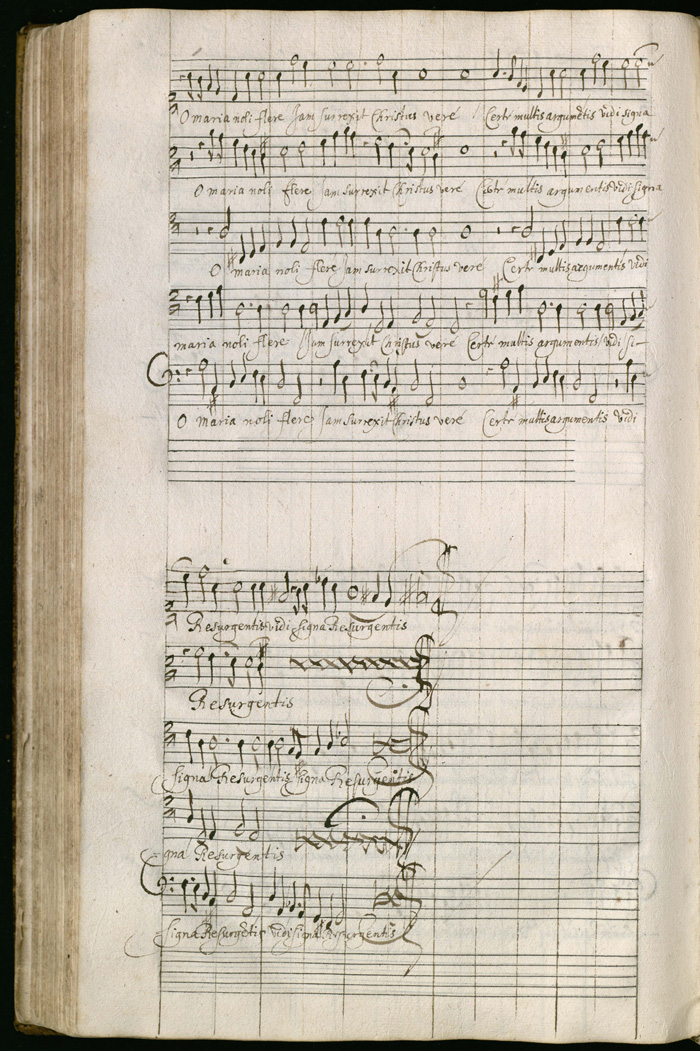 O maria noli flere Jam surrexit Christus veré Certe multis argumẽtis vidi signa
O maria noli flere Jam surrexit Christus veré Certe multis argumentis vidi signa
O maria noli flere Jam surrexit Christus veré Certe multis argumentis vidi
maria noli flere Jam surrexit Christus veré Certe multis argumentis vidi si-
O maria noli flere Jam surrexit Christus veré Certe multis argumentis vidi
Resurgentis vidi signa Resurgentis
Resurgentis
signa Resurgentis signa Resurgentis
gna Resurgentis
signa Resurgẽtis vidi signa Resurgentis